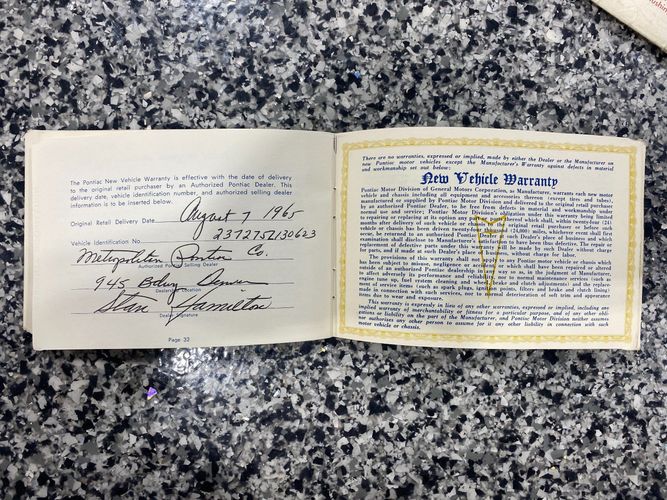 The Pontiac New Vehicle Warranty is effective with the date of delivery
to the original retail purchaser by an Authorized Pontiac Dealer. This
delivery date, vehicle identification number, and authorized selling dealer
information is to be inserted below.
Original Retail Delivery Date August 7 1965
Vehicle Identification No. 237275Z130623
Metropolitan Pontiac Co.
Authorized Pontiac Selling Dealer
945 Denver
Dealer's Location
Stan Hamilton
Dealer Signature
Page 32
There are no warranties, expressed or implied, made by either the Dealer or the Manufacturer on
new Pontiac motor vehicles except the Manufacturer's Warranty against defects in material
and workmanship set out below:
New Vehicle Warranty
Pontiac Motor Division of General Motors Corporation, as Manufacturer, warrants each new motor
vehicle and chassis including all equipment and accessories thereon (except tires and tubes),
manufactured or supplied by Pontiac Motor Division and delivered to the original retail purchaser
by an authorized Pontiac Dealer, to be free from defects in material and workmanship under
normal use and service; Pontiac Motor Division's obligation under this warranty being limited
to repairing or replacing at its option any part thereof which shall, within twenty-four (24)
months after delivery of such vehicle or chassis to the original retail purchaser or before such
vehicle or chassis has been driven twenty-four thousand (24,000) miles, whichever event shall first
occur, be returned to an authorized Pontiac Dealer at such Dealer's place of business and which
examination shall disclose to Manufacturer's satisfaction to have been thus defective. The repair or
replacement of defective parts under this warranty will be made by such Dealer without charge
for parts, and if made at such Dealer's place of business, without charge for labor.
The provisions of this warranty shall not apply to any Pontiac motor vehicle or chassis which
has been subject to misuse, negligence, or accident, or which shall have been repaired or altered
outside of an authorized Pontiac dealership in any way so as, in the judgment of Manufacturer,
to affect adversely its performance and reliability, nor to normal maintenance services (such as
engine tune up, fuel system cleaning and wheel, brake and clutch adjustments) and the replace-
ment of service items (such as spark plugs, ignition points, filters and brake and clutch lining)
made in connection with such services, nor to normal deterioration of soft trim and appearance
items due to wear and exposure.
This warranty is expressly in lieu of any other warranties, expressed or implied, including any
implied warranty of merchantability or fitness for a particular purpose, and of any other obli-
gations or liability on the part of the Manufacturer, and Pontiac Motor Division neither assumes
nor authorizes any other person to assume for it any other liability in connection with such
motor vehicle or chassis.